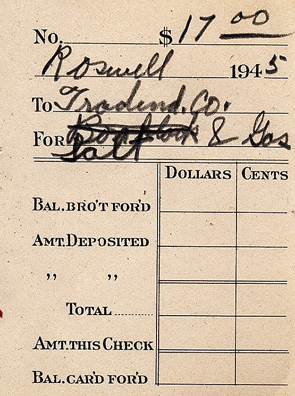 No. $17 00
Roswell 1945
To Tradind. Co.
For & Gas
Salt
DOLLARS CENTS
BAL. BRO'T FOR'D
AMT. DEPOSITED
,, ,,
TOTAL ..........
AMT. THIS CHECK
BAL. CAR'D FOR'D